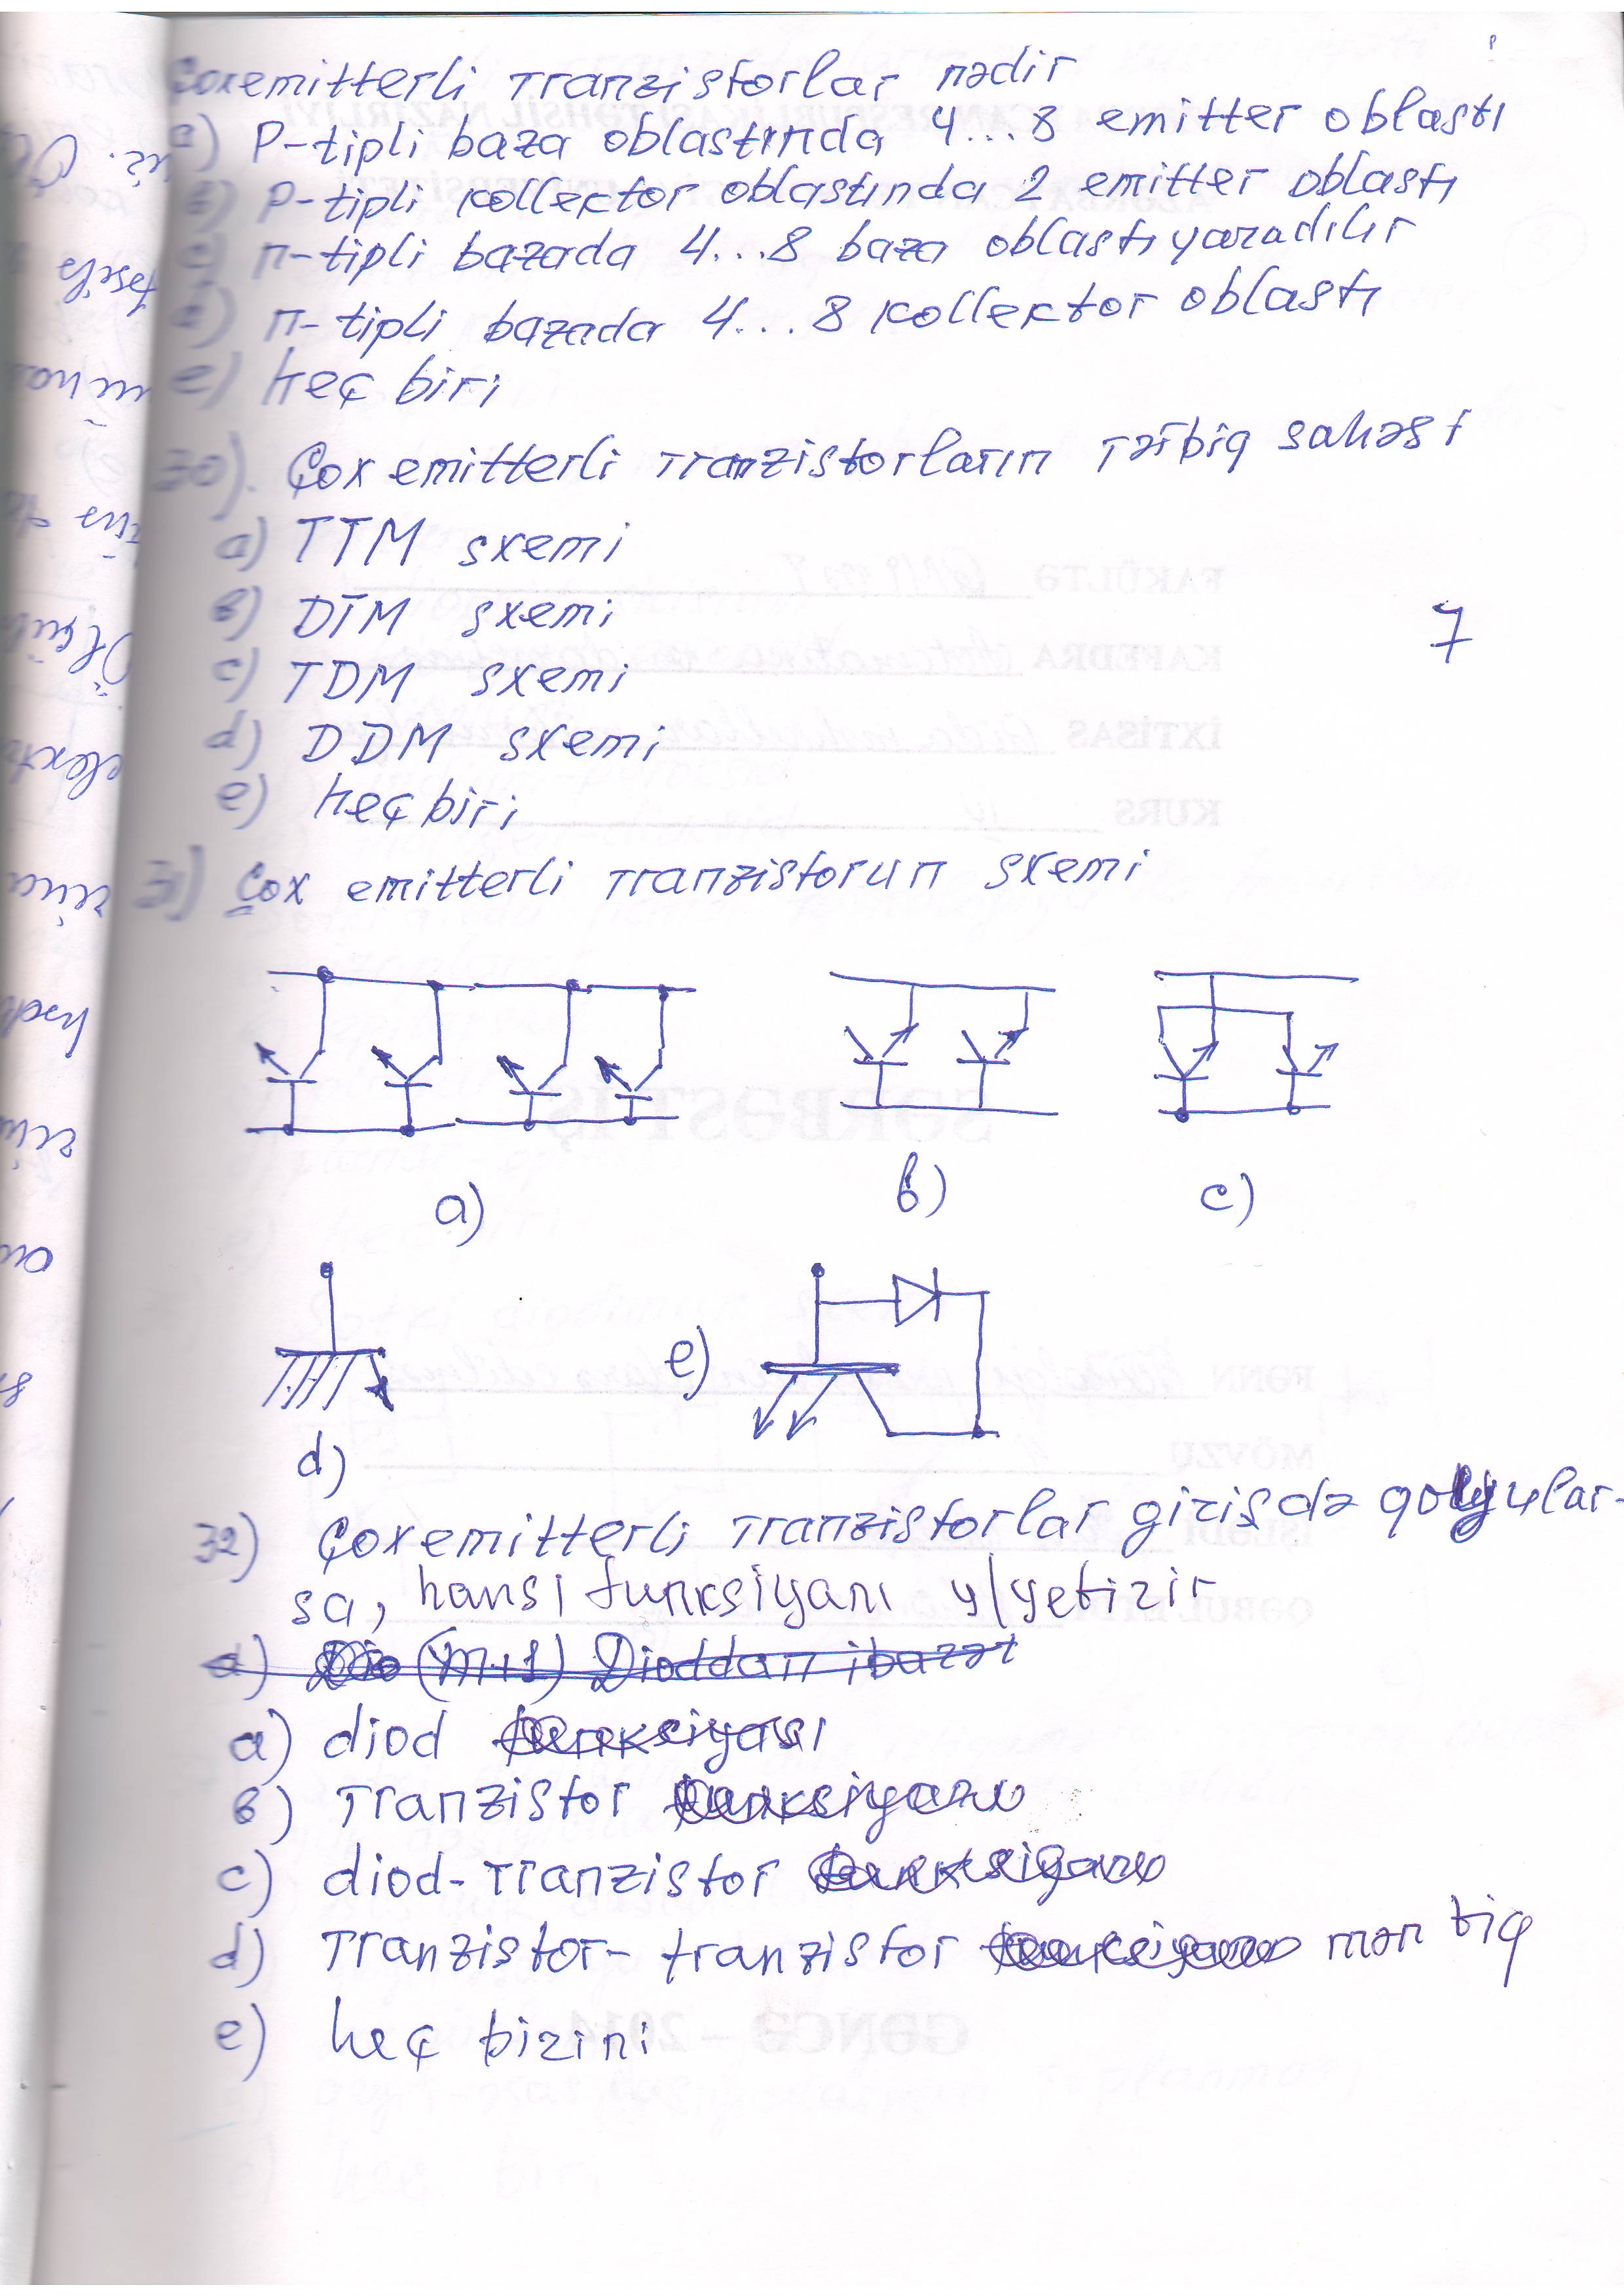 Çoxemitterli tranzistorlar nədir
a) P-tipli baza oblastında 4...8 emitter oblastı
b) P-tipli kollektor oblastında 2 emitter oblastı
c) n-tipli bazada 4...8 baza oblastı yaradılır
d) n-tipli bazada 4...8 kollektor oblastı
e) heç biri
30). Çox emitterli tranzistorların tətbiq sahəsi
a) TTM sxemi
b) DTM sxemi
7
c) TDM sxemi
d) DDM sxemi
e) heç biri
31) Çox emitterli tranzistorun sxemi
a) b) c)
e)
d)
32) Çoxemitterli tranzistorlar girişdə qoyular-
sa, hansı funksiyanı y/yetirir
a) Dio (m+1) Dioddan ibarət
a) diod funksiyası
b) Tranzistor
c) diod-tranzistor
d) Tranzistor-tranzistor məntiq
e) heç birini